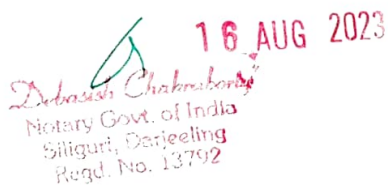 16 AUG 2023
Debasish Chakraborty
Notary Govt. of India
Siliguri, Darjeeling
Regd. No. 13792